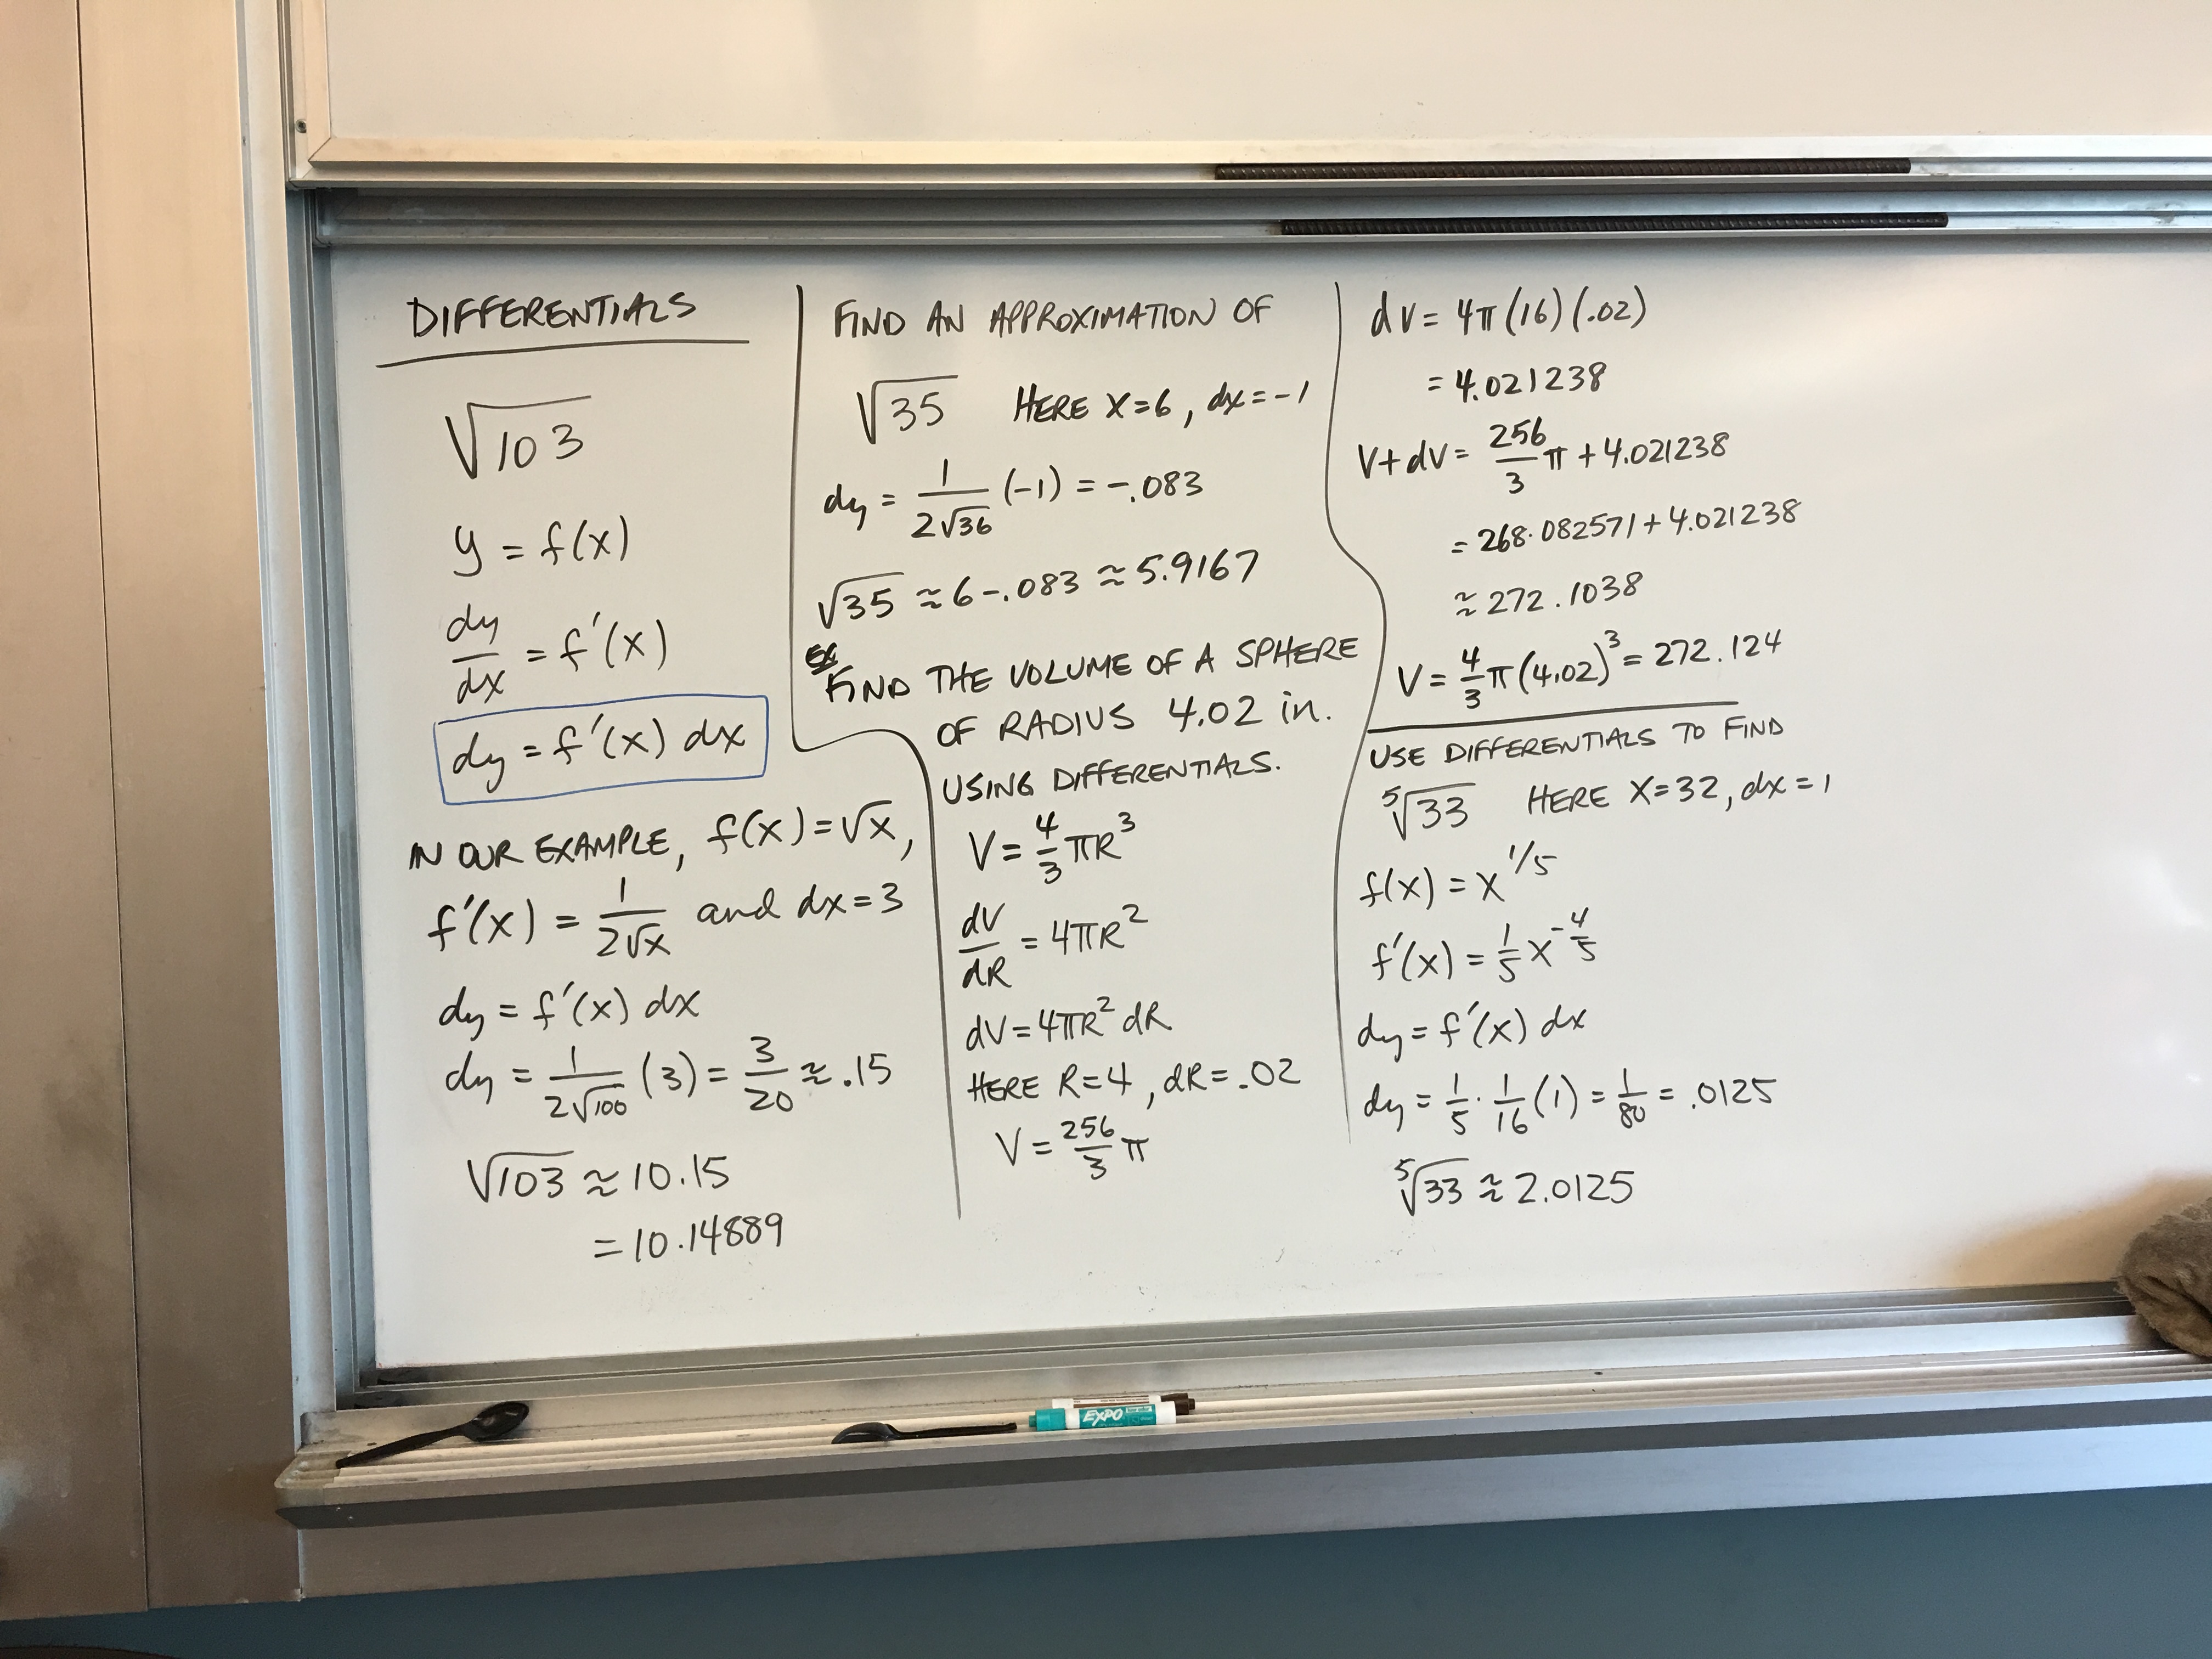 DIFFERENTIALS
√103
y = f(x)
dy/dx = f'(x)
dy = f'(x) dx
IN OUR EXAMPLE, f(x) = √x,
f'(x) = 1/(2√x) and dx = 3
dy = f'(x) dx
dy = 1/(2√100) (3) = 3/20 ≈ .15
√103 ≈ 10.15
= 10.14889
FIND AN APPROXIMATION OF
√35 HERE X=6, dx=-1
dy = 1/(2√36) (-1) = -.083
√35 ≈ 6-.083 ≈ 5.9167
EX
FIND THE VOLUME OF A SPHERE
OF RADIUS 4.02 in.
USING DIFFERENTIALS.
V = 4/3 πR³
dV/dR = 4πR²
dV = 4πR² dR
HERE R=4, dR=.02
V = 256/3 π
dV = 4π(16)(.02)
= 4.021238
V+dV = 256/3 π + 4.021238
= 268.082571 + 4.021238
≈ 272.1038
V = 4/3 π(4.02)³ = 272.124
USE DIFFERENTIALS TO FIND
⁵√33 HERE X=32, dx=1
f(x) = x^1/5
f'(x) = 1/5 x^-4/5
dy = f'(x) dx
dy = 1/5 · 1/16 (1) = 1/80 = .0125
⁵√33 ≈ 2.0125
EXPO